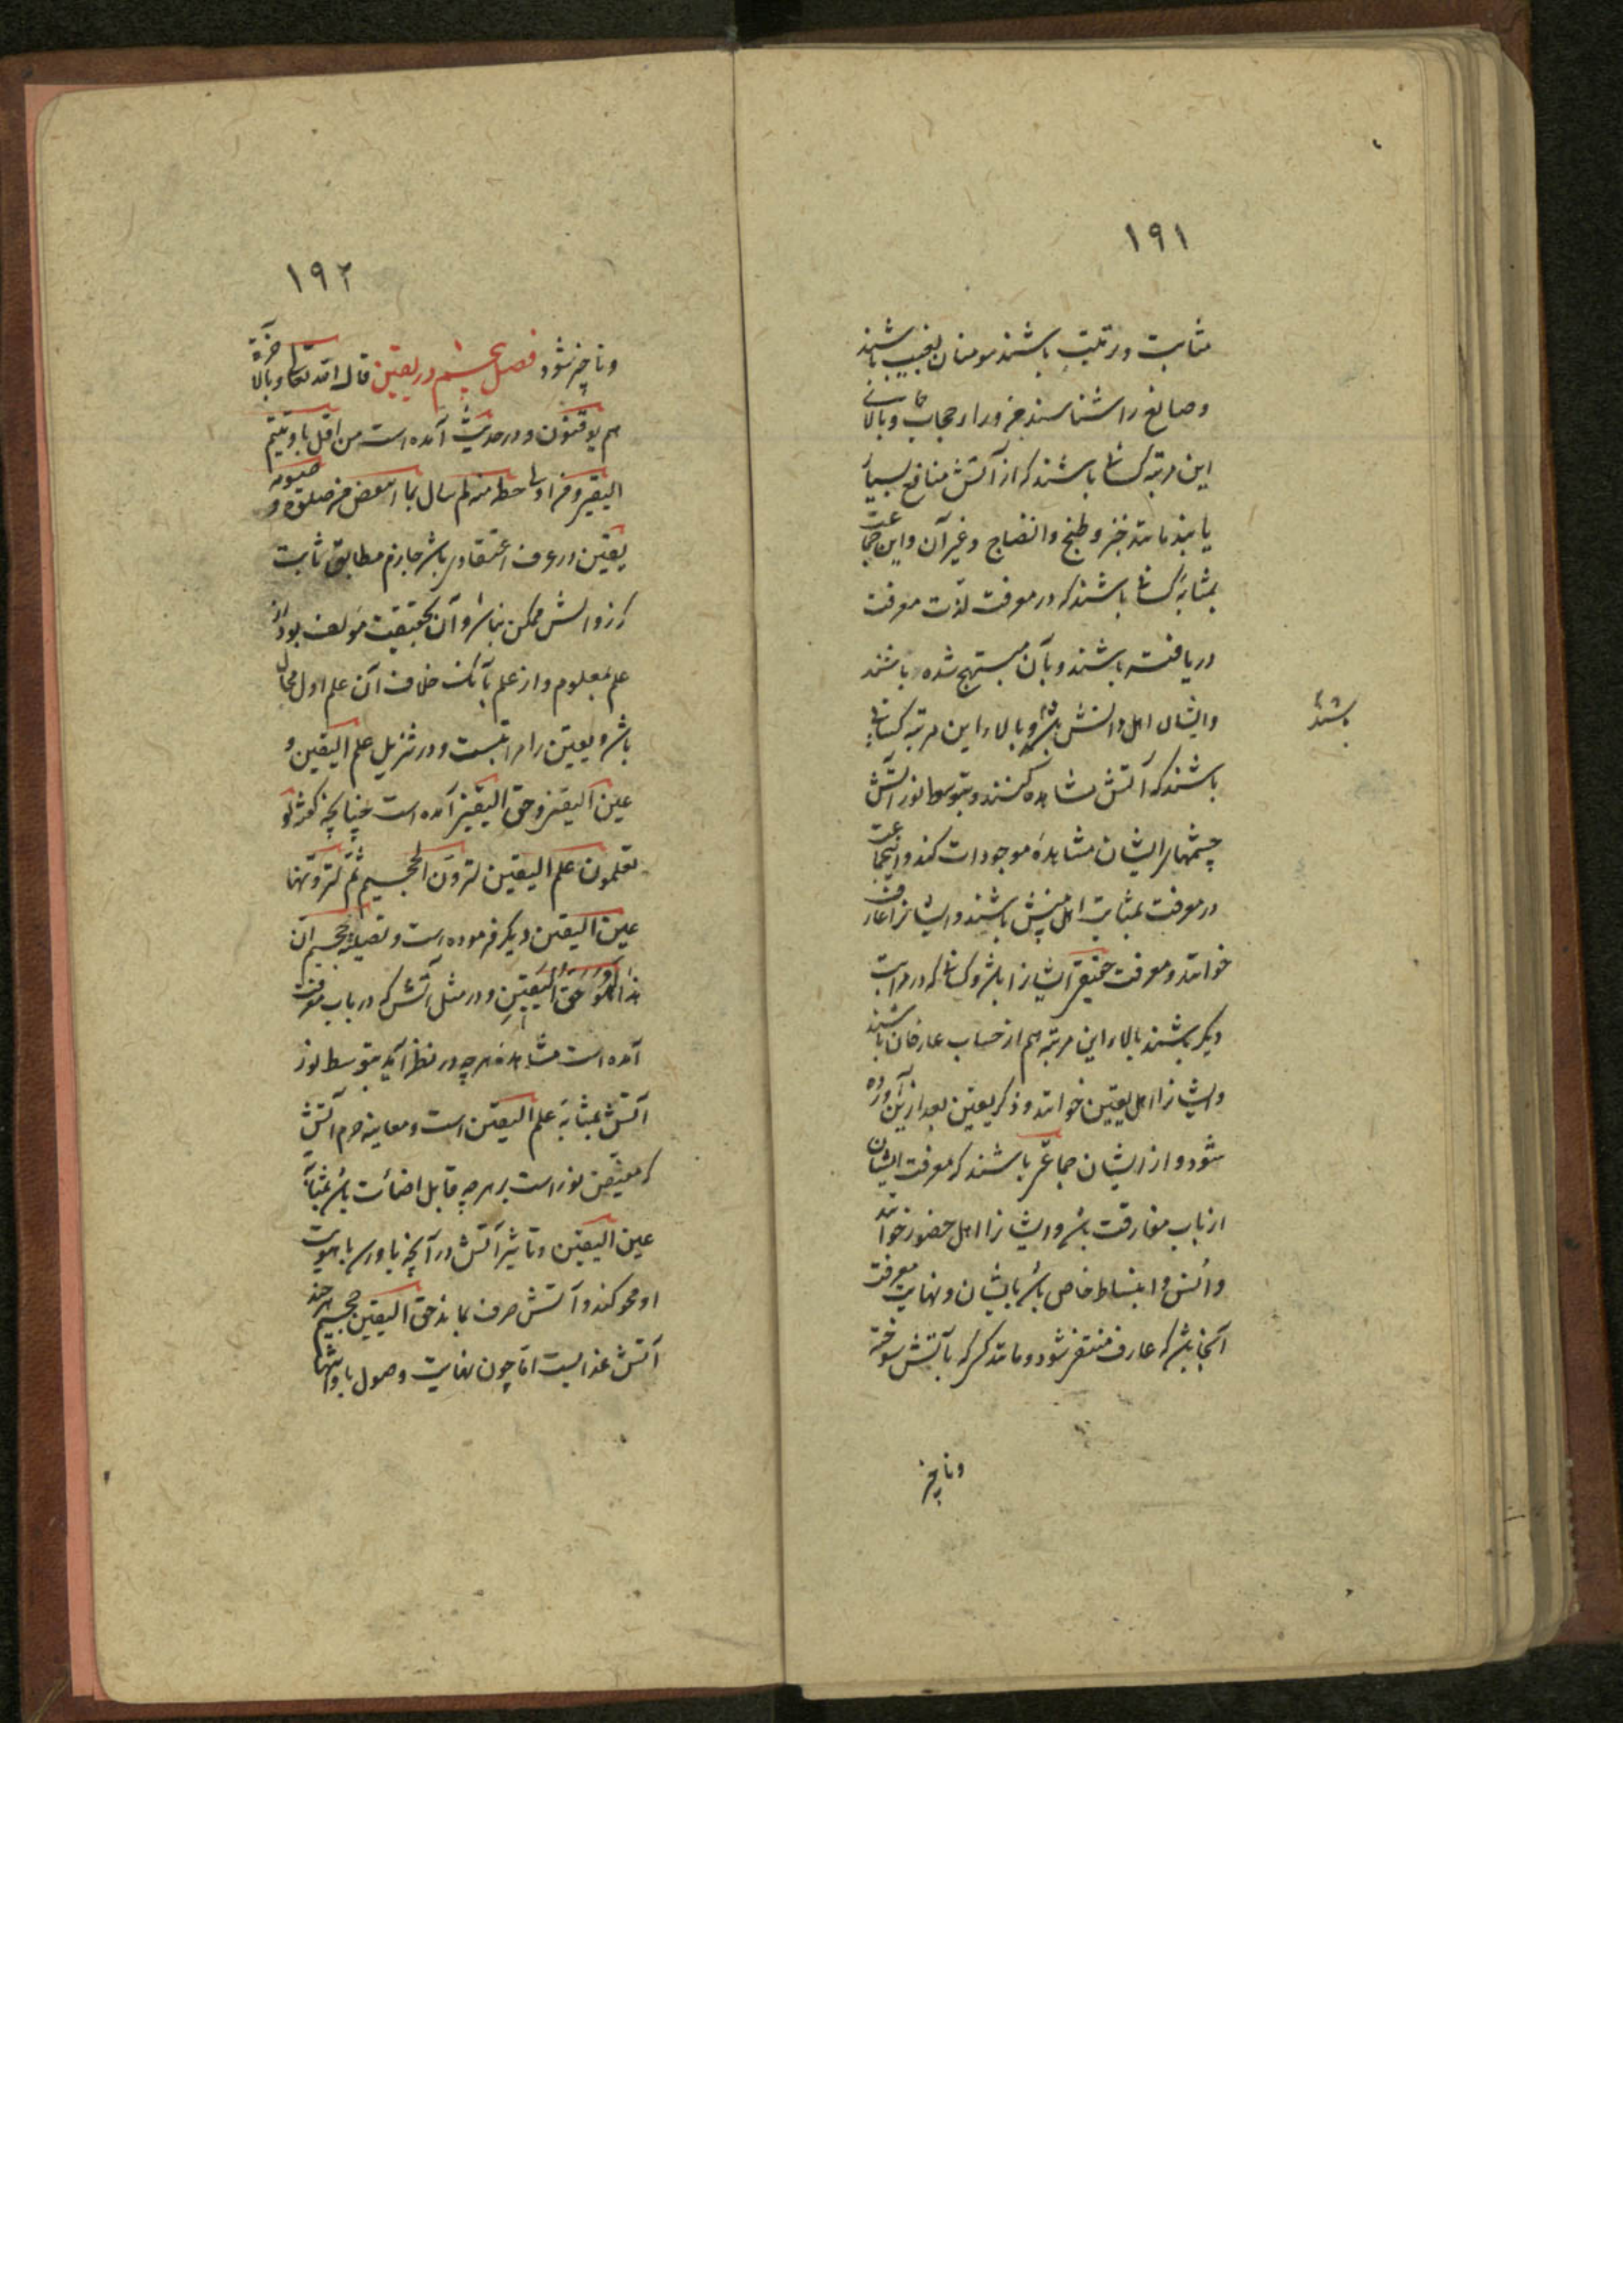 ١٩١
مثابت در تلبّب باشند مومنان بغیب باشند
و صانع را شناسند جز ورار حجاب و بالای
این مرتبه کسانی باشند که از آتش منافع بسیار
یابند مانند خبز و طبخ و انضاج و غیر آن و این جماعت
بمثابهٔ کسانی باشند که در معرفت لذّت معرفت
دریافته باشند و بآن مبتهج شده باشند
و ایشان اهل دانش باشند و بالاء این مرتبه کسانی
باشند
باشند که آتش مشاهده کنند و بتوسط نور آتش
چشمهاء ایشان مشاهدهٔ موجودات کند و اینجماعت
در معرفت بمثابت اهل بینش باشند و ایشانرا عارف
خوانند و معرفت حقیقی ایشانرا باشد و کسانی که در مراتب
دیگر باشند بالاء این مرتبه هم از حساب عارفان باشند
و ایشانرا اهل یقین خوانند و ذکر یقین بعد ازین آورده
شود و از ایشان جماعتی باشند که معرفت ایشان
از باب مفارقت باشد و ایشانرا اهل حضور خوانند
و انس و انبساط خاص باشد بایشان و نهایت معرفت
آنجا باشد که عارف منتفی شود و مانند کسی که بآتش سوخته
و ناچیز
١٩٢
و ناچیز شود فصل پنجم در یقین قال الله تعالی و بالآخرة
هم یوقنون و در حدیث آمده است من اقل ما اوتیتم
الیقین و من اوتی حظه منه لم یبال بما انتقص من صلوته و صومه
یقین در عرف اعتقادی باشد جازم مطابق ثابت
که زوالش ممکن نباشد و آن بحقیقت مؤلف بود از
علم بمعلوم و از علم بآنک خلاف آن علم اول محال
باشد و یقین را مراتبست و در تنزیل علم الیقین و
عین الیقین و حق الیقین آمده است چنانچه گفت لو
تعلمون علم الیقین لترونّ الجحیم ثم لترونّها
عین الیقین دیگر فرموده است و تصلیة جحیم ان
هذا لهو حق الیقین و در مثل آتش که در باب معرفت
آمده است مشاهدهٔ هرچه در نظر آید بتوسط نور
آتش بمثابهٔ علم الیقین است و معاینهٔ جرم آتش
که مفیض نور است بر هرچه قابل اضائت باشد بمثابهٔ
عین الیقین و تاثیر آتش در آنچه باو رسد تا هویت
او محو کند و آتش صرف بماند حق الیقین جحیم هرچند
آتش عذابست اما چون نهایت وصول باو انتها